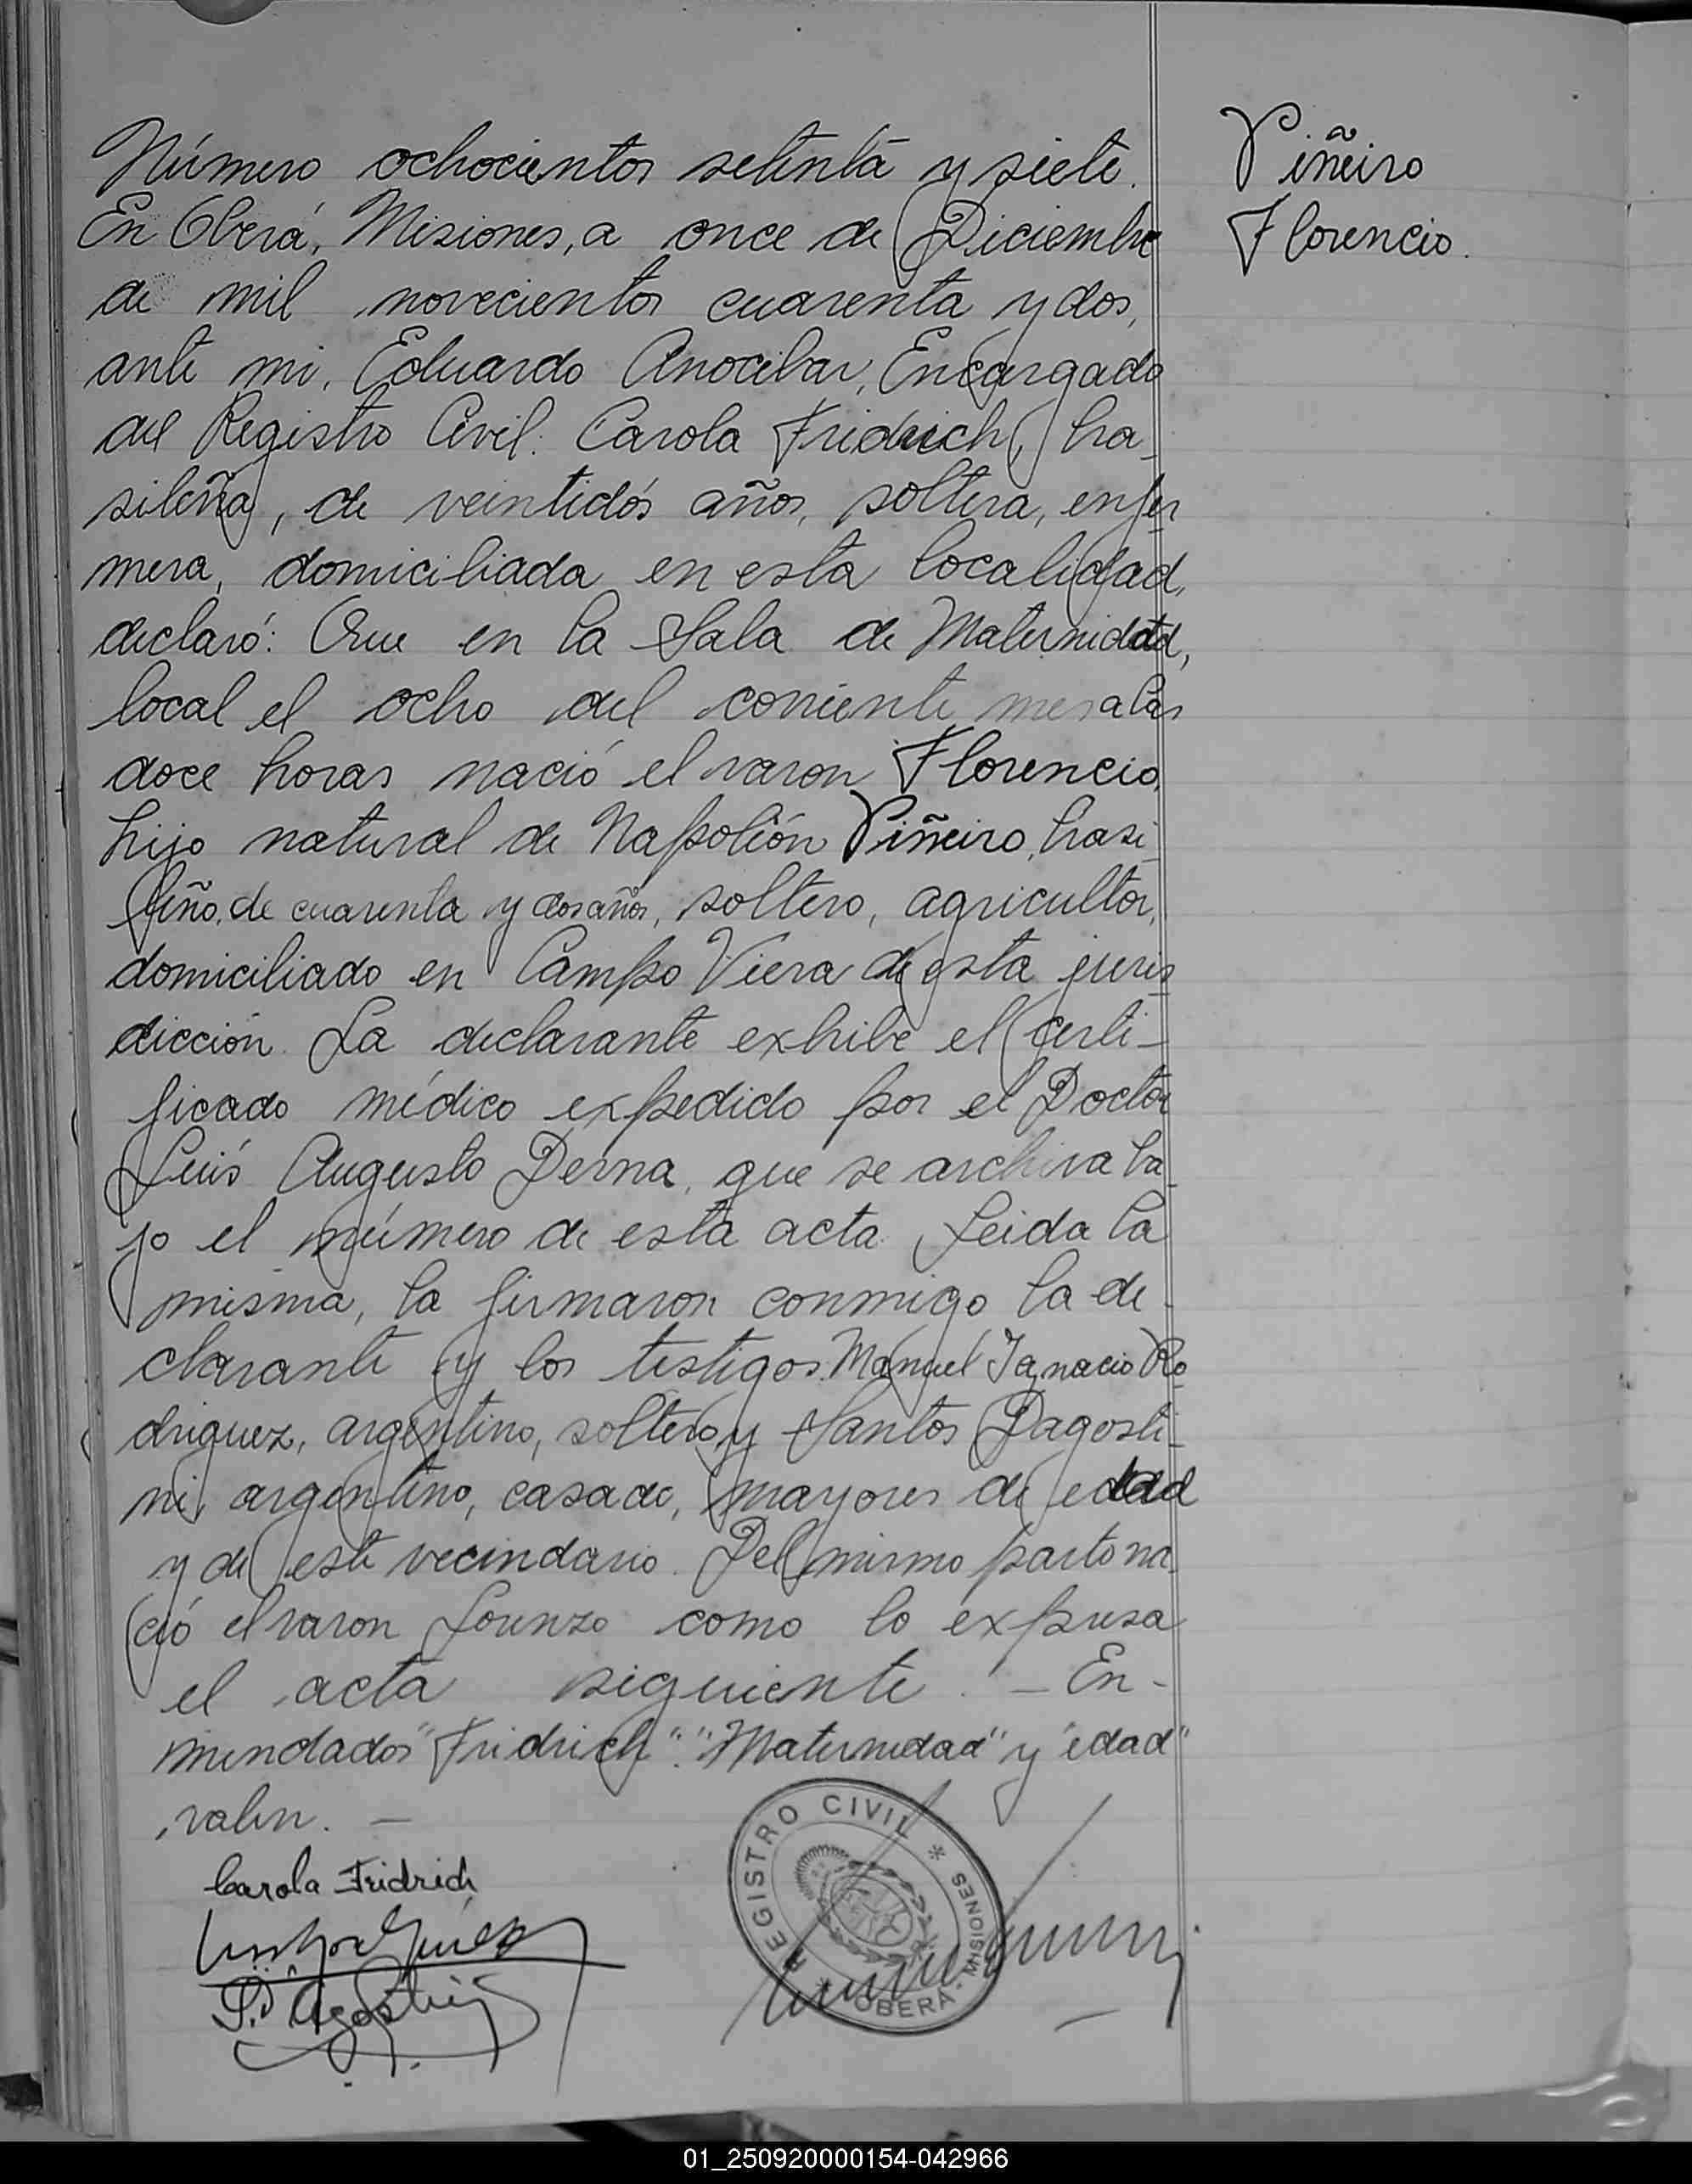 Número ochocientos setenta y siete.
En Oberá, Misiones, a once de Diciembre
de mil novecientos cuarenta y dos,
ante mi, Eduardo Anocibar, Encargado
del Registro Civil: Carola Fridrich, bra_
sileña, de veintidós años, soltera, enfer
mera, domiciliada en esta localidad,
declaró: Que en la Sala de Maternidad,
local el ocho del corriente mes a las
doce horas nació el varon Florencio,
hijo natural de Napolión Piñeiro, brasi_
leño, de cuarenta y dos años, soltero, agricultor,
domiciliado en Campo Viera de esta juris
dicción. La declarante exhibe el certi_
ficado médico expedido por el Doctor
Luis Augusto Derna, que se archiva ba_
jo el número de esta acta. Leida la
misma, la firmaron conmigo la de_
clarante y los testigos Manuel Ignacio Ro
driguez, argentino, soltero y Santos Dagosti_
ni, argentino, casado, mayores de edad
y de este vecindario. Del mismo parto na_
ció el varon Lorenzo como lo expresa
el acta siguiente. _ En-
mendados "Fridrich". "Maternidad" y "edad"
valen. —
Carola Fridrich
S. D'Agostini
REGISTRO CIVIL * OBERÁ - MISIONES *
Piñeiro
Florencio.
01_250920000154-042966